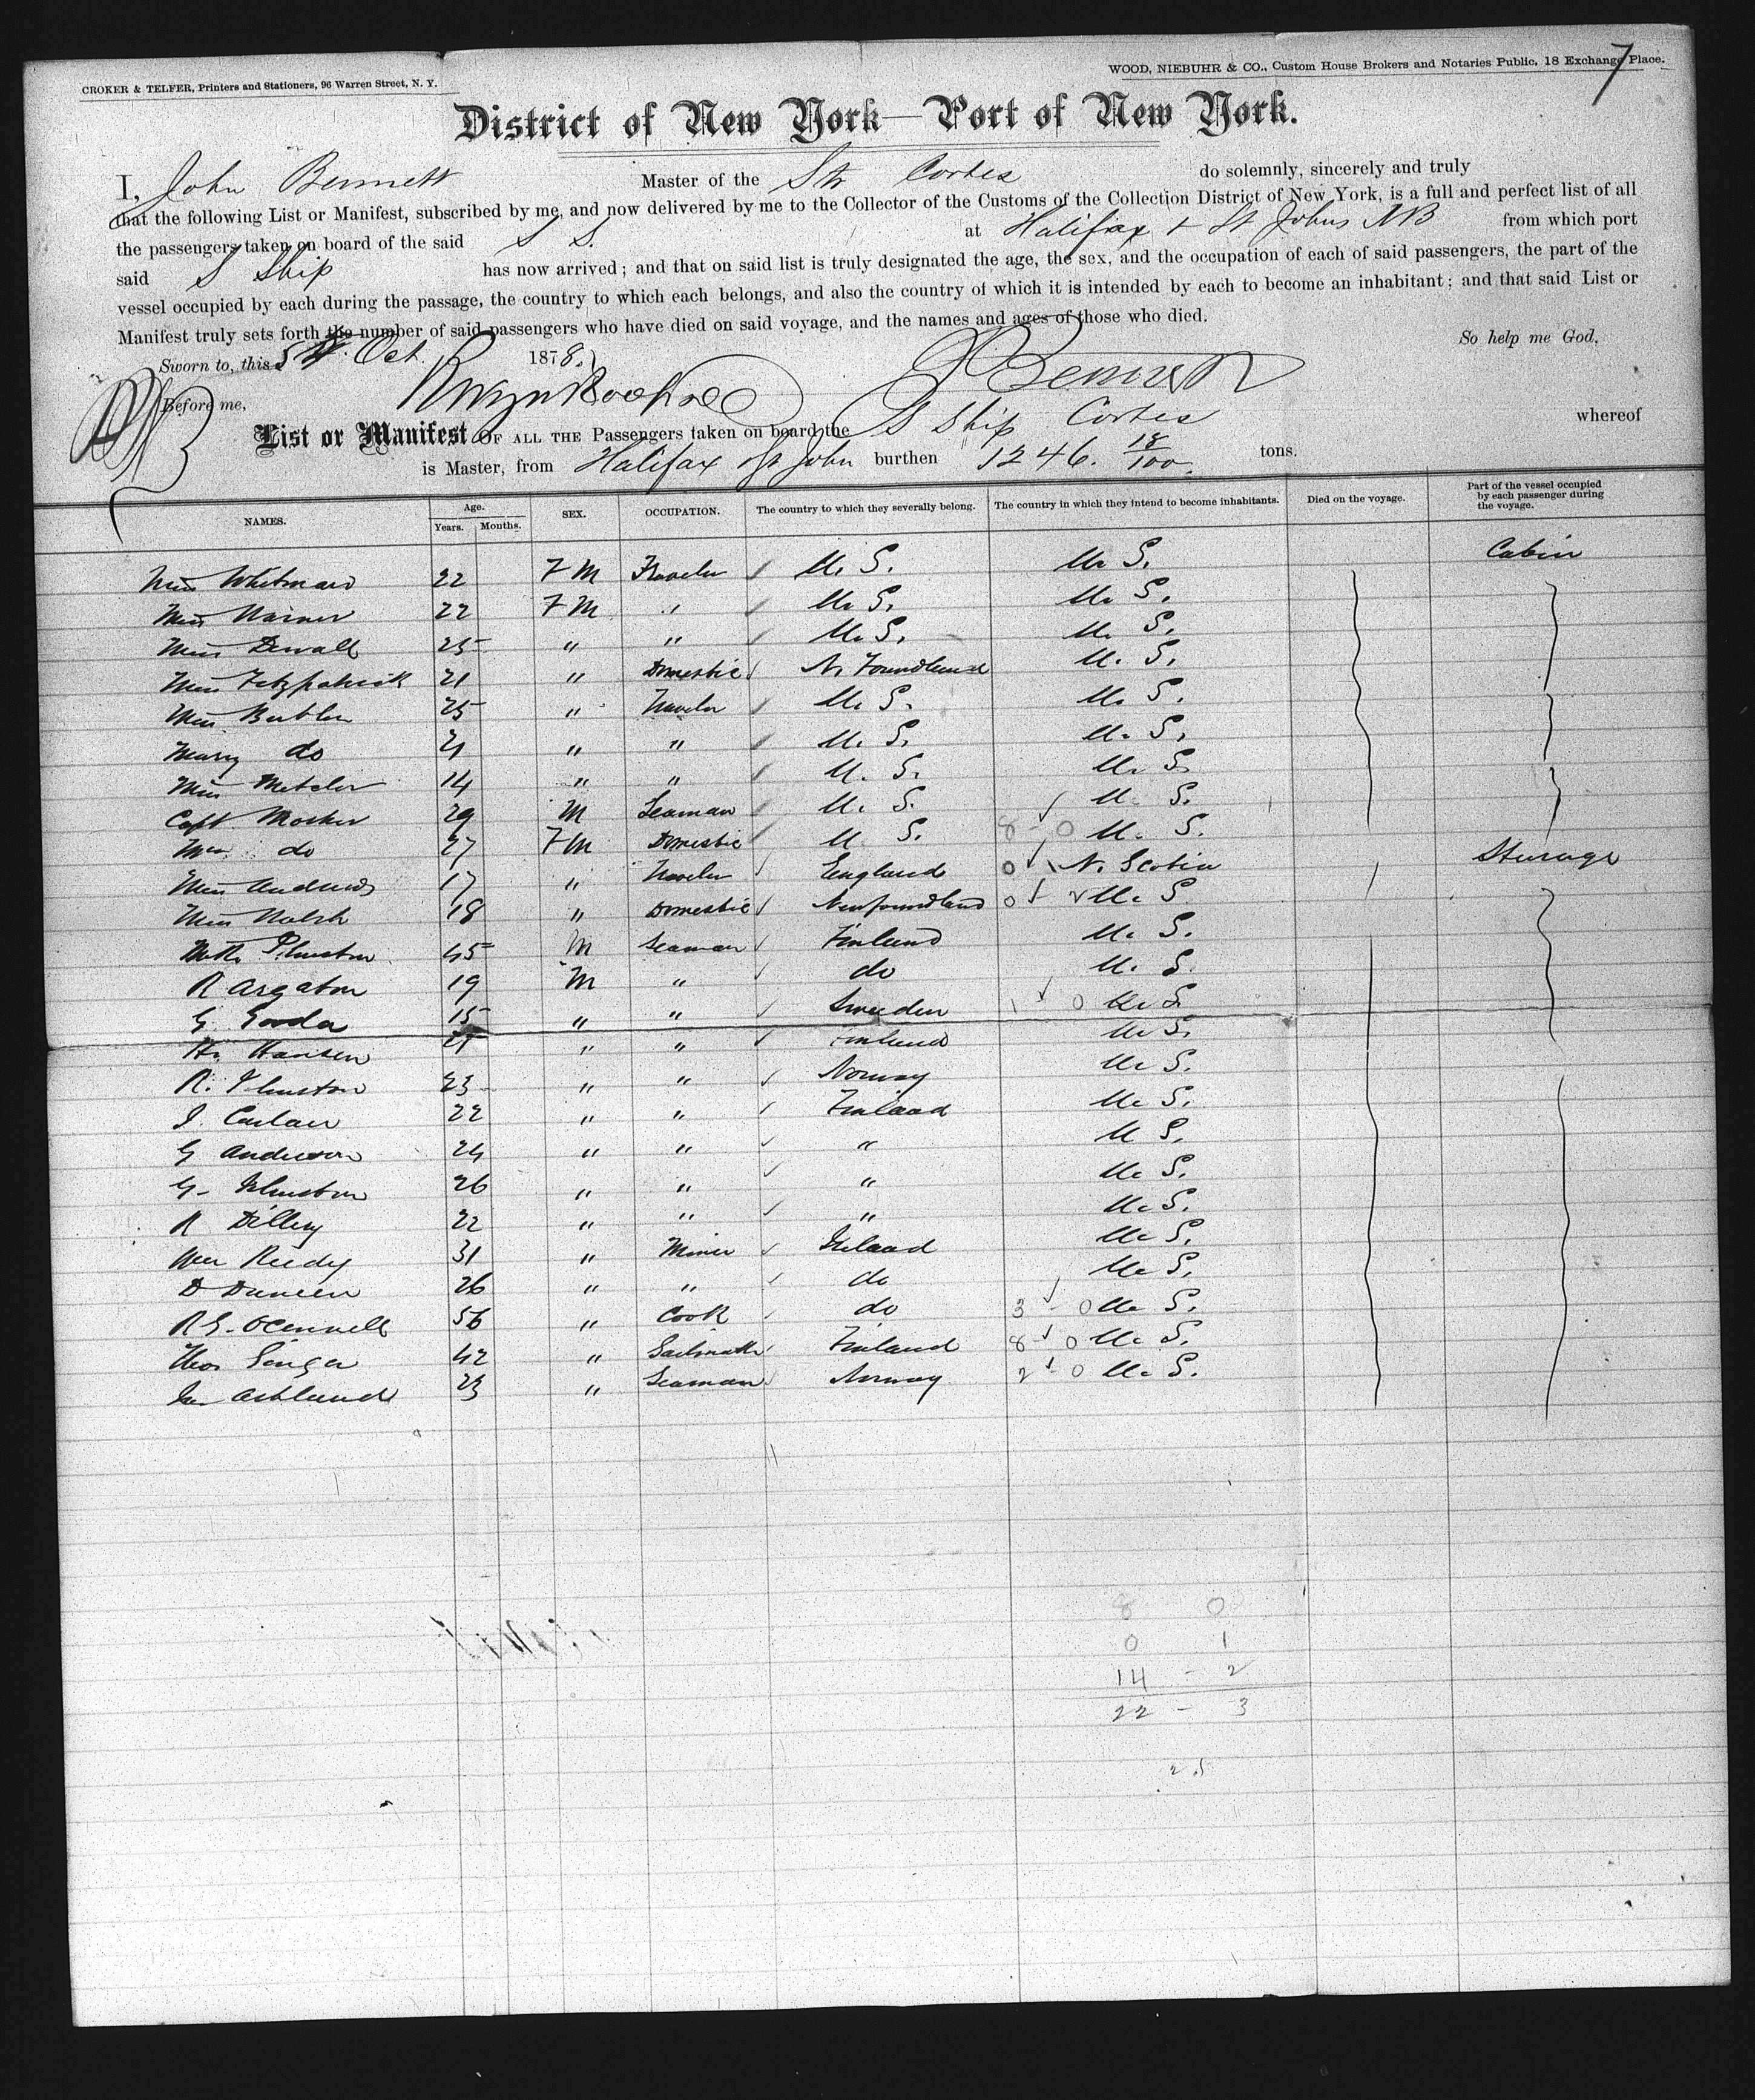 CROKER & TELFER, Printers and Stationers, 96 Warren Street, N. Y.
WOOD, NIEBUHR & CO., Custom House Brokers and Notaries Public, 18 Exchange Place.
7
District of New York—Port of New York.
I, John Bennett Master of the Str Cortes do solemnly, sincerely and truly
that the following List or Manifest, subscribed by me, and now delivered by me to the Collector of the Customs of the Collection District of New York, is a full and perfect list of all
the passengers taken on board of the said S S. at Halifax + St Johns NB from which port
said S Ship has now arrived; and that on said list is truly designated the age, the sex, and the occupation of each of said passengers, the part of the
vessel occupied by each during the passage, the country to which each belongs, and also the country of which it is intended by each to become an inhabitant; and that said List or
Manifest truly sets forth the number of said passengers who have died on said voyage, and the names and ages of those who died.
So help me God,
Sworn to, this 5th Oct. 1878. J Bennett
Before me,
List or Manifest OF ALL THE Passengers taken on board the S Ship Cortes whereof
is Master, from Halifax St John burthen 1246. 18/100 tons.
NAMES. Age. Years. Months. SEX. OCCUPATION. The country to which they severally belong. The country in which they intend to become inhabitants. Died on the voyage. Part of the vessel occupied by each passenger during the voyage.
Cabin
Miss Whitman 22 F M Traveler U. S. U. S.
Miss Warner 22 F M " U. S. U. S.
Miss Dewall 25 " " U. S. U. S.
Miss Fitzpatrick 21 " Domestic N. Foundland U. S.
Miss 25 " Traveler U. S. U. S.
Mary do 21 " " U. S. U. S.
Miss Metcler 14 " " U. S. U. S.
Capt. Mosher 29 M Seaman U. S. U. S.
Mrs. do 27 F M Domestic U. S. 8 - 0 U. S.
Miss Andrews 17 " Traveler England 0 1 N. Scotia Sturage
Miss Walsh 18 " Domestic Newfoundland 0 U. S.
45 M Seaman Finland U. S.
R Argaton 19 M " do U. S.
G. Gooda 15 " " Sweden 1 0 U. S.
Hr. Hansen 21 " " Finland U. S.
R. Jhnston 23 " " Norway U. S.
J. Carlan 22 " " Finlaad U. S.
G Anderson 24 " " " U S.
G- Jhnston 26 " " " U. S.
R Dillery 22 " " " U. S.
Wm Reedy 31 " Miner Irelaad U. S.
D Duncan 26 " " do U. S.
R G. OConnell 56 " Cook do 3 - 0 U. S.
Thos Singer 42 " Finland 8 - 0 U. S.
Ashlund 23 " Seaman Norway 2 - 0 U. S.
8 0
0 1
14 - 2
22 - 3
25